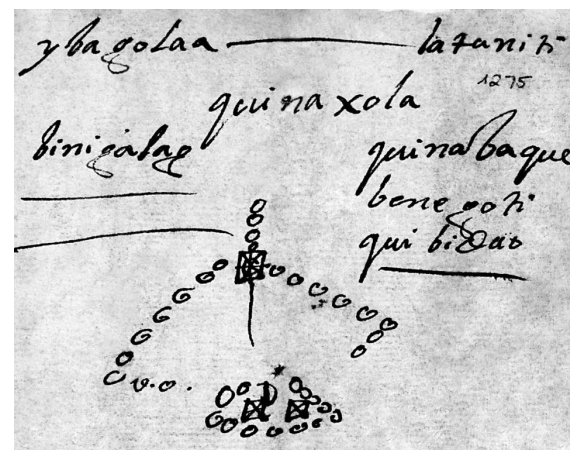 ybagolaa — latuniti
1275
quinaxola
binigalag
quinabaque
bene goti
qui bidao
v.o.